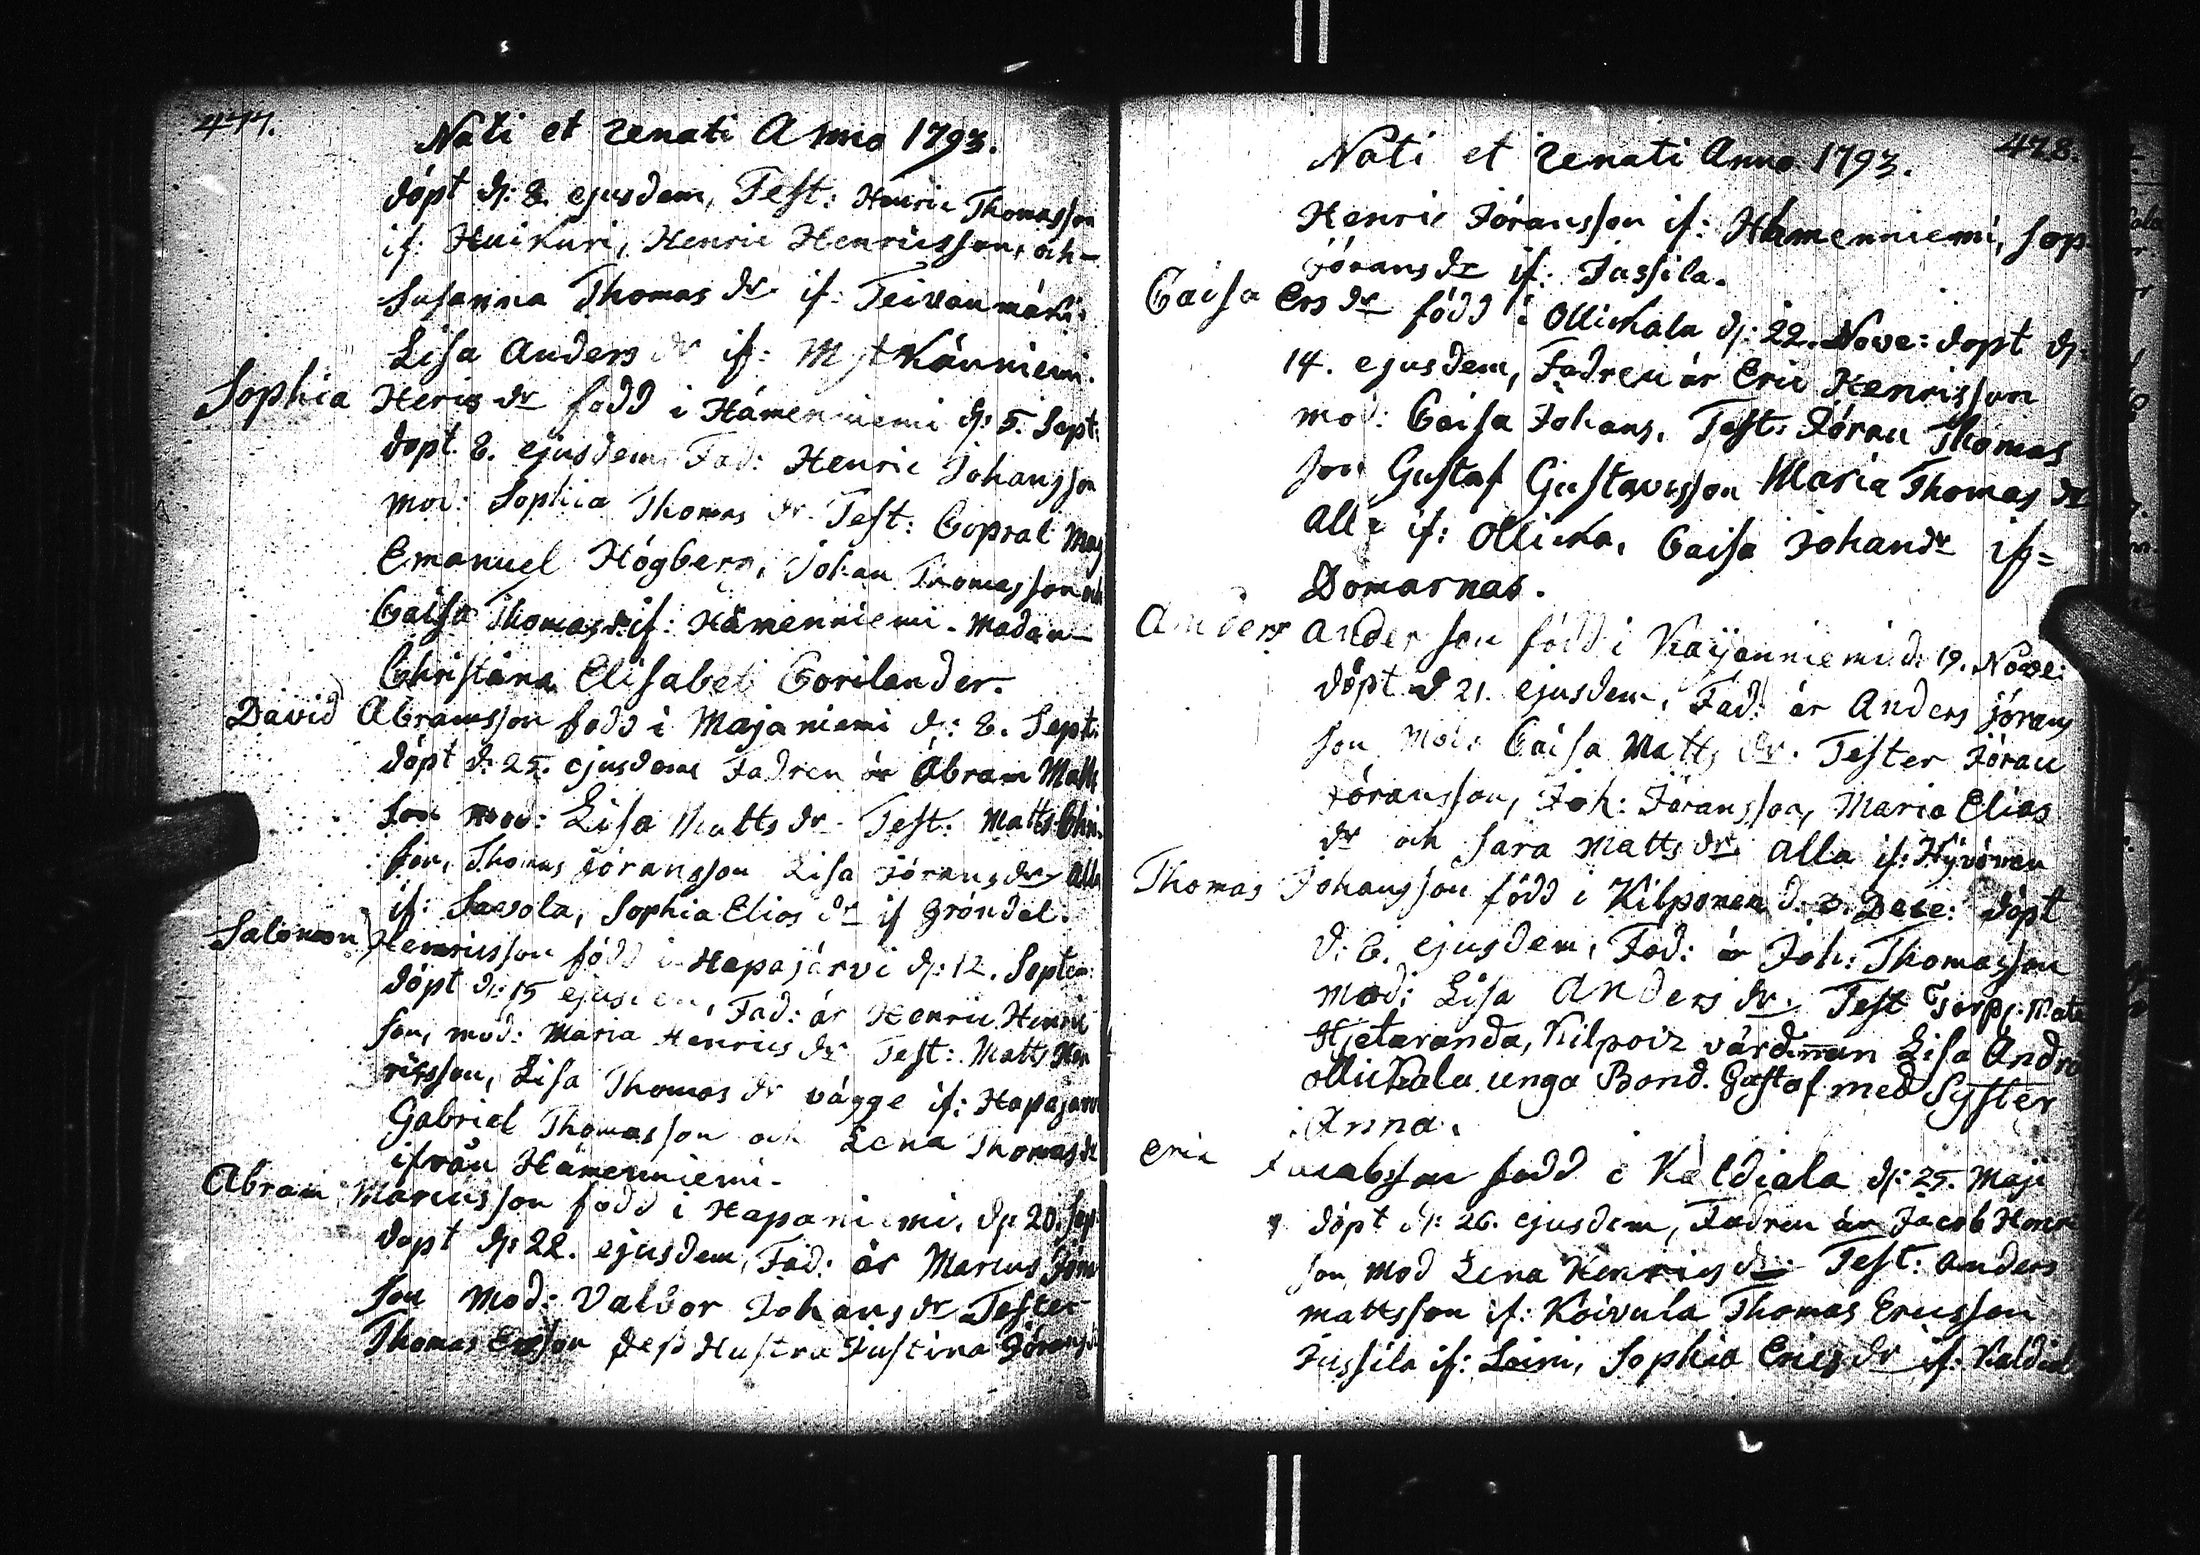 477.
Nati et renati Anno 1793.
döpt d: 8. ejusdem, Test: Henric Thomasson
if: Huikuri, Henric Henricsson, och
Susanna Thomas dr if: Teivanmäki
Lisa Anders dr if:
Sophia Heric dr född i Hämenniemi d: 5. Sept:
döpt. 8. ejusdem Fad: Henric Johansson
mod: Sophia Thomas dr Test: Copral Maj
Emanuel Högberg, Johan Thomasson och
Caisa Thomas dr if: Hämenniemi. Madam
Christina Elisabet Gorilander.
David Abramsson född i Majaniemi d: 8. Sept:
döpt d: 25. ejusdem Fadren är Abram Matts
son mod: Lisa Matts dr Test: Matts
son, Thomas Jöransson Lisa Jörans dr alla
if: Savola, Sophia Elias dr if Gröndal.
Salomon Henricsson född i Hapajärvi d: 12. Septem:
döpt d: 15 ejusdem, Fad: är Henric Henric
son, mod: Maria Henrics dr Test: Matts Hen
ricsson, Lisa Thomas dr vägge if: Hapajärvi
Gabriel Thomasson och Lena Thomas dr
ifrån Hämenniemi.
Abram Marcusson född i Hapaniemi, d: 20. Sep
döpt d: 22. ejusdem, Fad: är Marcus Jöran
son mod: Valbor Johans dr Tester
Thomas Ersson dess Hustru Justina Jörans
478.
Nati et renati Anno 1793.
Henric Jöransson if: Hämenniemi, Sop
Jörans dr if: Jussila.
Caisa Ers dr född i Ollickala d: 22. Nove: döpt d:
14. ejusdem, Fadren är Eric Henricsson
mod: Caisa Johans, Test: Jöran Thomas
son Gustaf Gustavsson Maria Thomas dr
alla if: Ollicka, Caisa Johandr if=
Domarnas.
Anders Anderson född i Kaijanniemi d: 19. Nove:
döpt d 21. ejusdem, Fad: är Anders Jörans
son Mod: Caisa Matts dr. Tester Jöran
Jöransson, Joh: Jöransson, Maria Elias
dr och Sara Matts dr alla if: Hyvönen
Thomas Johansson född i Kilponen d. Dece: döpt
d: 6. ejusdem, Fad: är Joh: Thomasson
mod: Lisa Anders dr. Test Torp:
Hjetaranda, Kilpoiz värdinnan Lisa Andrs
Ollikala unga Bond. Gustaf med Syster
Anna.
Eric Jacobsson född i Kaldiala d: 25. Maji
döpt d: 26. ejusdem, Fadren är Jacob Henr
son mod Lena Henrics dr Test: Anders
mattsson if: Koivula Thomas Ericsson
Jussila if: Loiri, Sophia Erics dr if: Kaldial